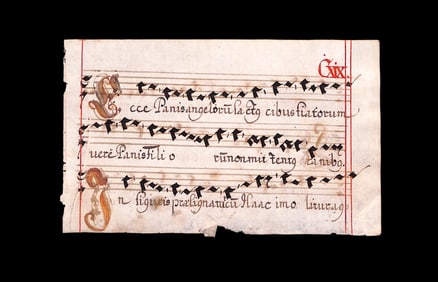 Cxix.
Ecce Panis angelorũ fa ctꝰ cibus fiatorum
vere Panis fili o rũ non mit tentꝰ canibꝰ.
In figuris præsignatur Isaac imo